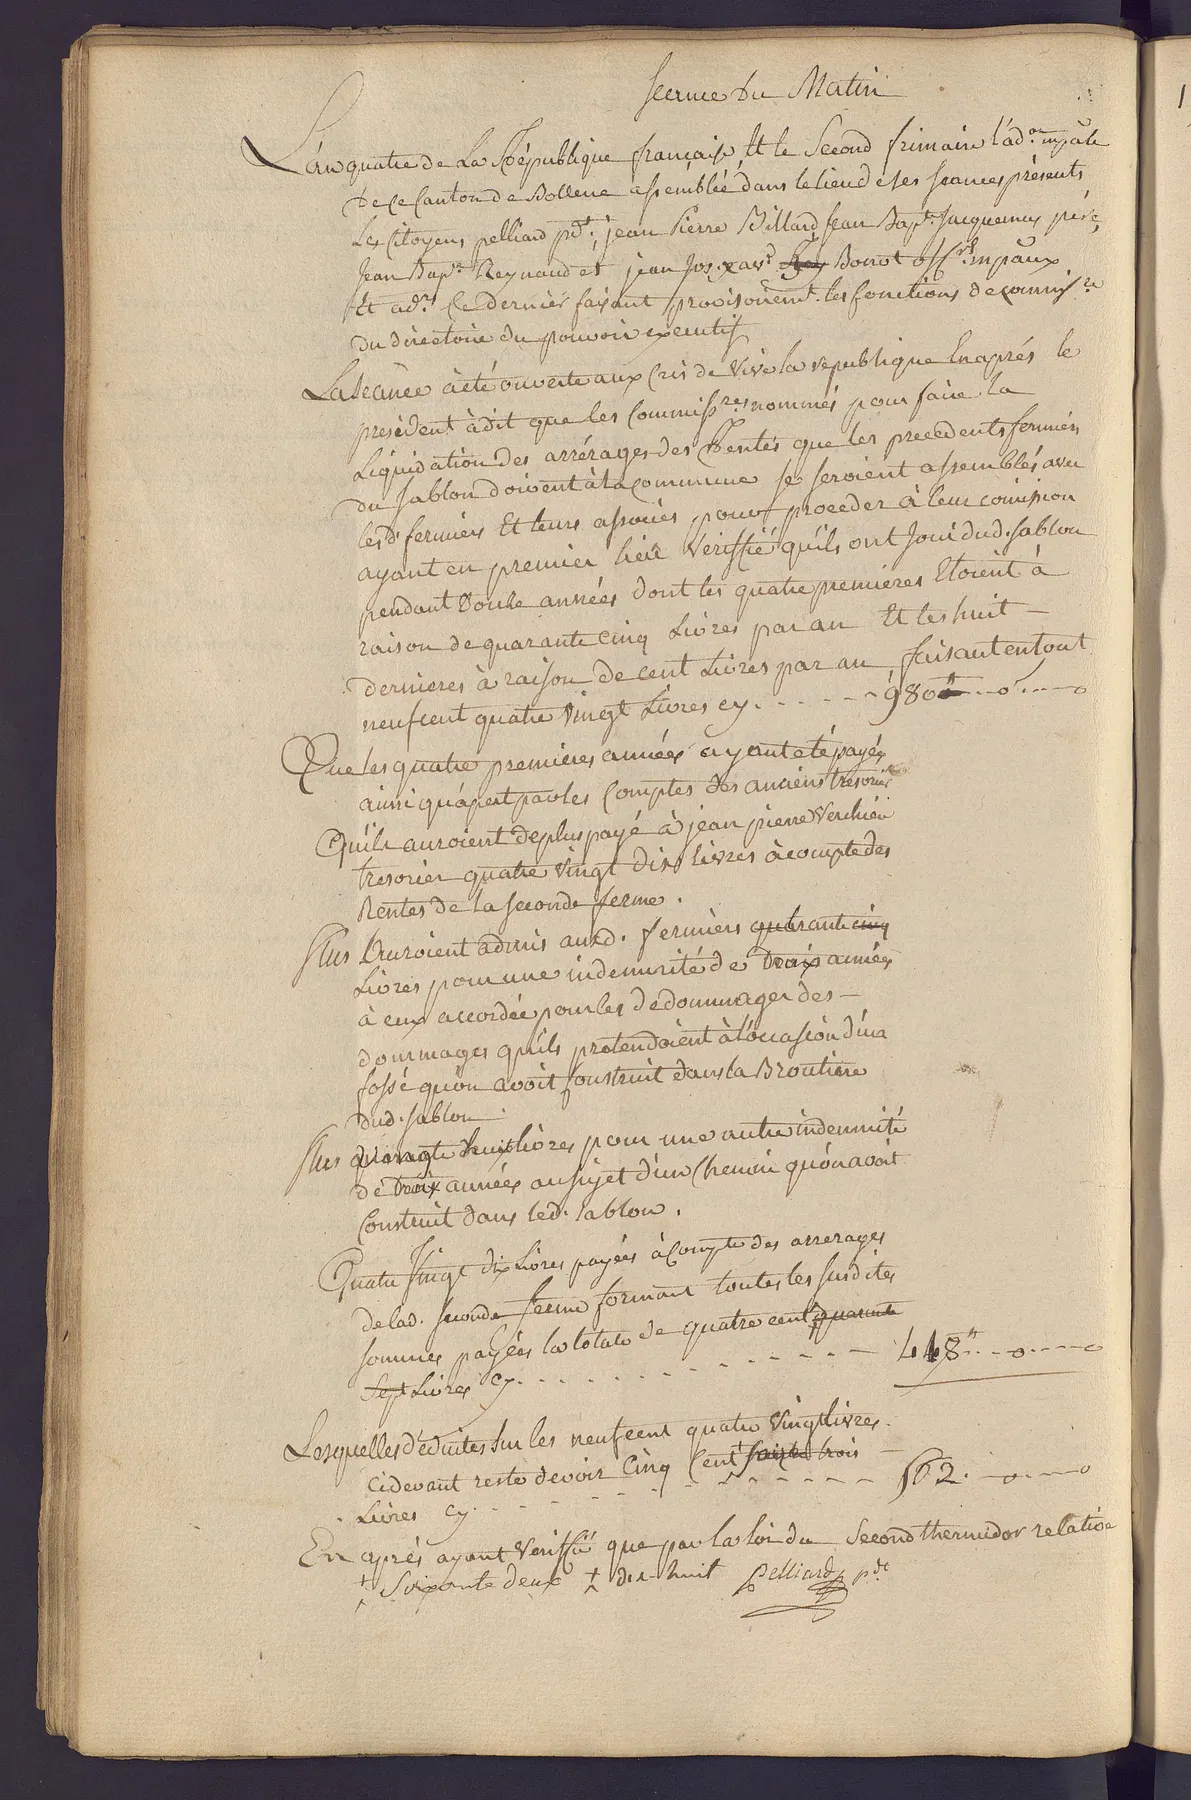 Sceance du Matin
L'an quatre de La République française Et le Second frimaire l'ad.on mpāle
de ce Canton de Bollene assemblée dans le lieu de ses seances présents
Les Citoyens pelliard pdt. jean Pierre Billard Jean Bapte. Jacquemus pére,
Jean Bapte. Reynaud et jean Jos. xavr. Boirot offrs. mpāux
Et adr. Ce dernier faisant provisoiremt. les fonctions de commissre
du directoire du pouvoir executif
La séance à été ouverte aux Cris de Vive la republique En aprés le
president à dit que les Commissres nommés pour faire la
Liquidation des arrérages des Rentes que les precedents fermiers
du sablon doivent à la commune se seroient assemblés avec
les d. fermiers Et leurs associés, pour proceder à leur comission
ayant en premier lieu Veriffié qu'ils ont Joui dud. sablon
pendant Douze années dont les quatre premieres Etoient à
raison de quarante cinq Livres par an Et les huit –
dernieres à raison de cent Livres par an, faisant en tout
neuf cent quatre Vingt Livres cy. - - - - - 980 # - - o - - - o
Que les quatre premieres années ayant eté payés
ainsi qu'apert par les Comptes des anciens tresoriers
Qu'ils auroient de plus payé à jean pierre Verchiere
tresorier quatre Vingt Dix livres à compte des
Rentes de la seconde ferme.
Plus Auroient admis auxd. fermiers quarante cinq
Livres pour une indemnité de trois années
à eux accordée pour les dedommager des –
dommages qu'ils pretendoient à l'occasion d'un
fossé qu'on avoit Construit dans la Broutiere
dud. sablon.
Plus Livres pour une autre indemnité
de trois années au sujet d'un Chemin qu'on avoit
Construit dans led. sablon.
Quatre Vingt dix Livres payées à Compte des arrerages
de lad. seconde ferme formant toutes les susdites
sommes payées la totale de quatre cent quarante
Sept Livres cy. - - - - - - - - - - 448 # - - o - - - o
Lesquelles déduites sur les neuf cent quatre Vingt livres
cidevant reste devoir Cinq Cent trois –
Livres cy. - - - - - - - - - - 562. - o - - - o
En aprés ayant Veriffié que par la loi du Second thermidor relative
+ Soixante deux + dix-huit Pelliard pdt